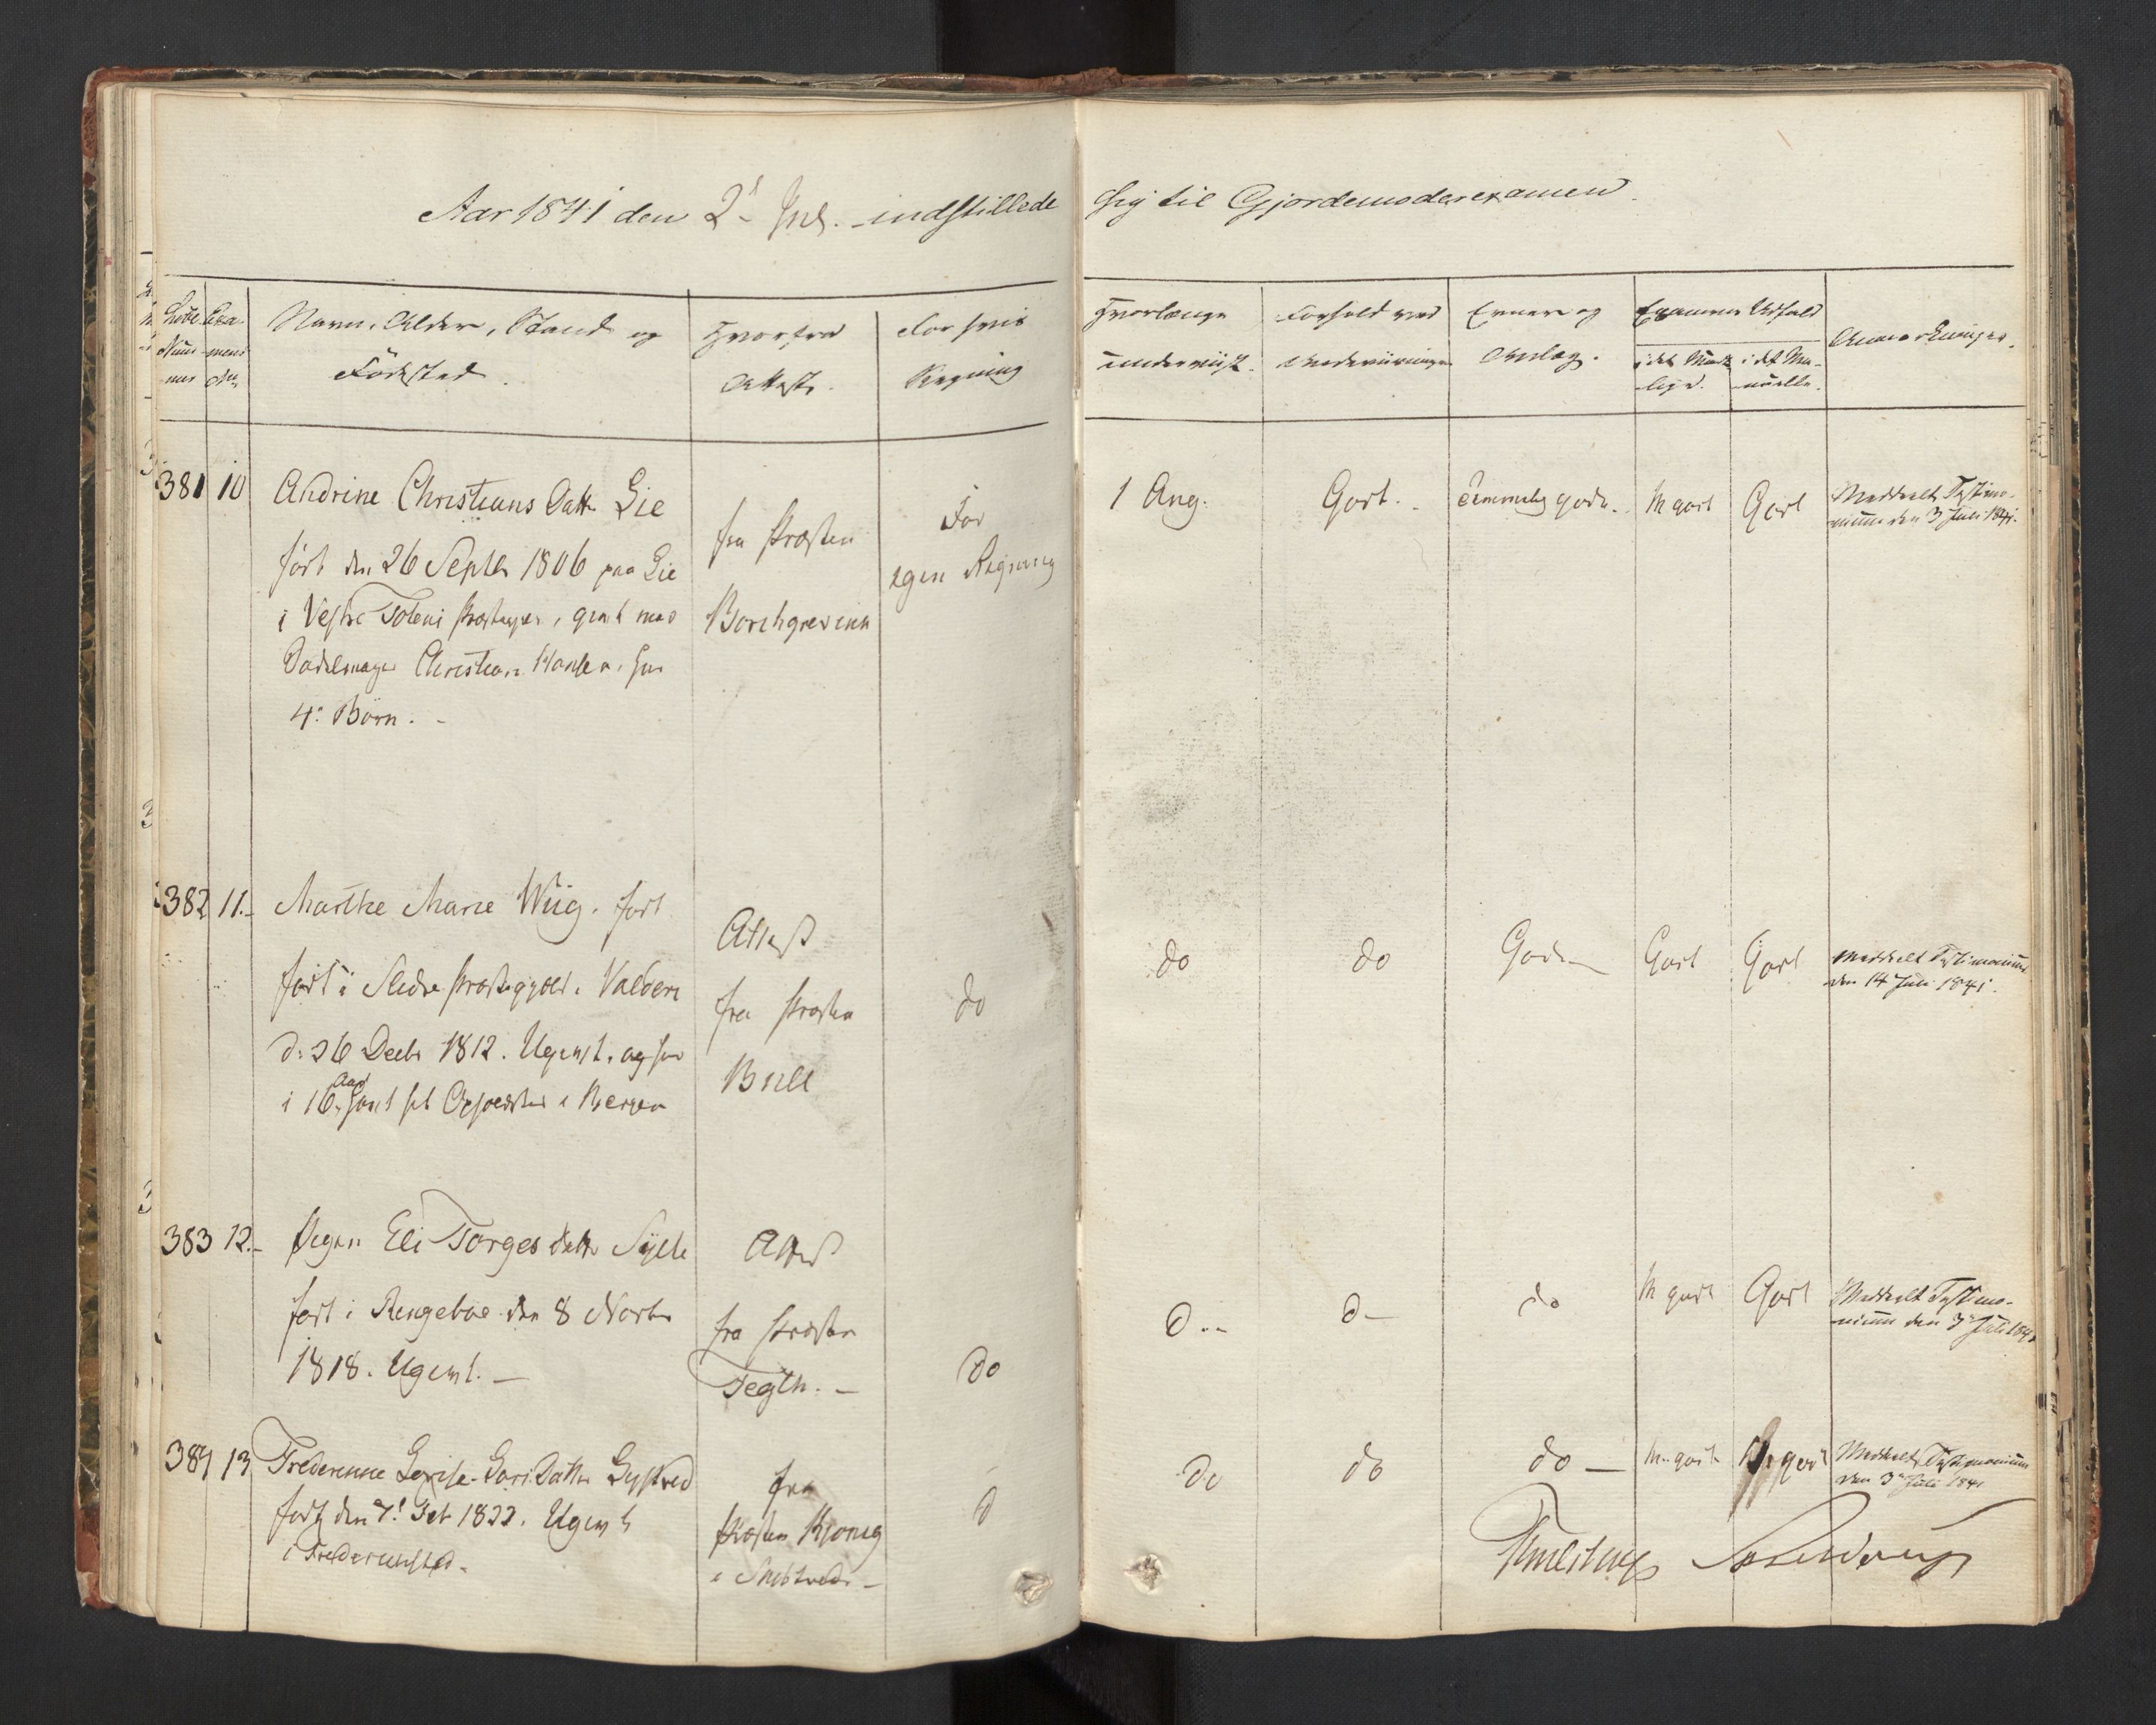 Aar 1841 den 2d Jul. indstillede sig til Gjordemoderexamen.
Løbe Nummer
Examens No
Navn, Alder, Stand og
Fødested.
Hvorfra
Attest.
For hvis
Regning
Hvorlænge
underviist.
Forhold ved
Underviisningen
Evner og
Anlæg.
Examens Udfald
i det Mundtlige.
i det Manuelle.
Anmærkninger.
381 10 Andrine Christians Datt. Lie
født den 26 Septbr 1806 paa Lie
i Vestre Totens Præstegjæld, givt med
Christian Hansen, har
4: Børn. -
fra Præsten
Borchgrevink
For
egen Regning
1 Gang.
Godt.
temmelig gode.
M godt
Godt
Meddeelt Testimo-
nium den 3 Juli 1841.
382 11.- Marthe Marie Wiig. født
født i Slidre Præstegjæld i Valders
d: 26 Decbr 1812. Ugivt. og har
i 16 Aar i Bergen
Attest
fra Præsten
Bull
do
do
do
Gode
Godt
Godt
Meddeelt Testimonium
den 14 Juli 1841.
383 12.- Pigen Eli Torgers datter
født i Ringeboe den 8 Novbr
1818. Ugivt. -
Attest
fra Præsten
Fegth. -
do
D..
d-
do
M godt
Godt
Meddeelt Testimo-
nium den 3 Juli 1841
384 13 Frederenne Lovise Datter
født den 7. 1822. Ugivt
i Frederichsted.
fra
Præsten
d
do
do
do -
M. godt
M. godt
Meddeelt Testimonium
den 3 Juli 1841